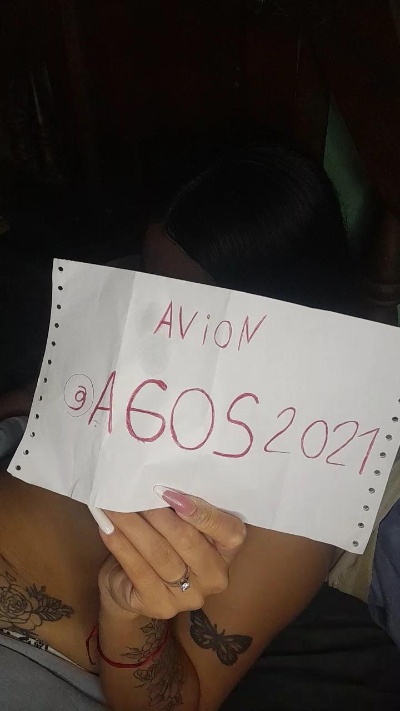 AViON
@AGOS2021